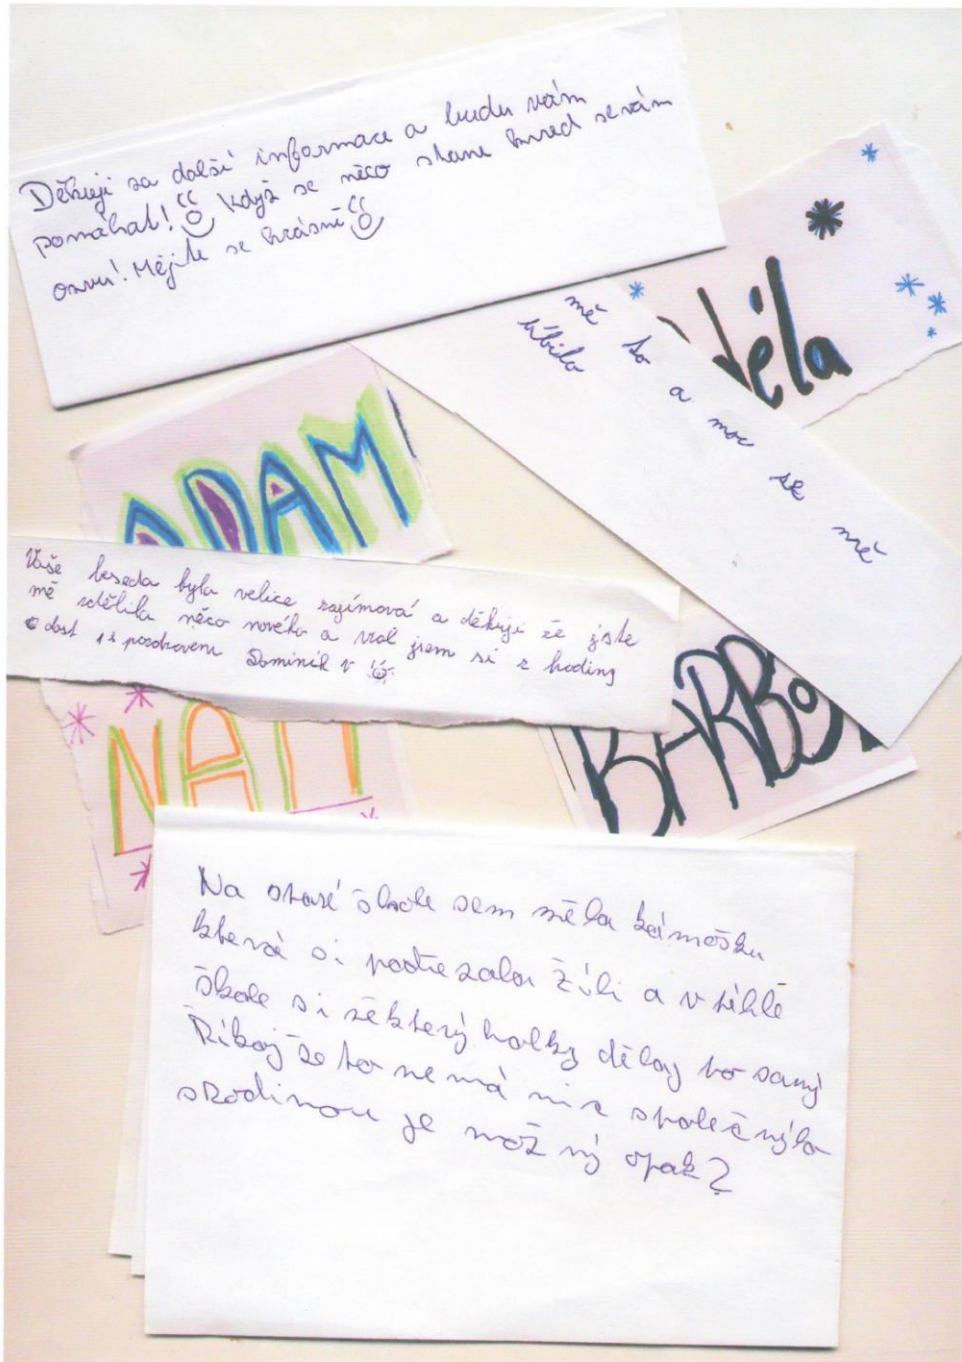 Děkuji za další informace a budu vám
pomáhat! Když se něco stane hned se vám
ozvu! Mějte se krásně
Něla
mě to a moc se mě
líbilo
ADAM
Vaše beseda byla velice zajímová a děkuji že jste
mě sdělila něco nového a vzal jsem si z hodiny
dost s pozdravem Dominik V
NAT
BARBO
Na staré škole sem měla kámošku
která si podřezala žíli a v téhlé
škole si některý holky dělaj to samý
Říkaj že to nemá nic společnýho
s Rodinou je možný opak?